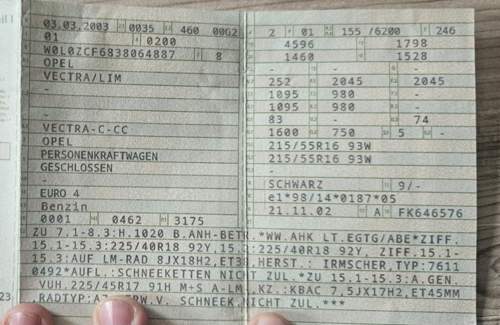 03.03.2003 0035 460 00G2
01 0200
W0L0ZCF6838064887 8
OPEL
VECTRA/LIM
-
-
VECTRA-C-CC
OPEL
PERSONENKRAFTWAGEN
GESCHLOSSEN
-
EURO 4
Benzin
0001 0462 3175
2 01 155 /6200 246
4596 1798
1460 1528
- - -
252 2045 2045
1095 980 -
1095 980 -
83 - 74
1600 750 5 -
215/55R16 93W
215/55R16 93W
-
SCHWARZ 9/-
e1*98/14*0187*05
21.11.02 A FK646576
ZU 7.1-8.3:H.1020 B.ANH-BETR.*WW.AHK LT.EGTG/ABE*ZIFF.
15.1-15.3:225/40R18 92Y,15.3:225/40R18 92Y, ZIFF.15.1-
15.3:AUF LM-RAD 8JX18H2,ET38,HERST. IRMSCHER,TYP:7611
0492*AUFL.:SCHNEEKETTEN NICHT ZUL.*ZU 15.1-15.3:A.GEN.
VUH.225/45R17 91H M+S A-LM. KZ.:KBAC 7,5JX17H2,ET45MM
,RADTYP: V. SCHNEEK.NICHT ZUL.***
23